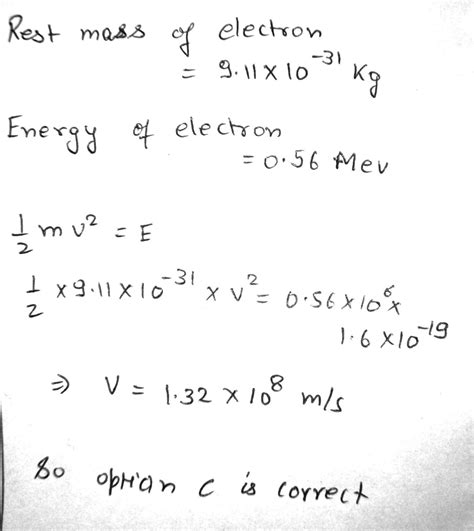 Rest mass of electron
= 9.11 × 10⁻³¹ Kg
Energy of electron
= 0.56 Mev
1/2 m v² = E
1/2 × 9.11 × 10⁻³¹ × v² = 0.56 × 10⁶ ×
1.6 × 10⁻¹⁹
⇒ V = 1.32 × 10⁸ m/s
So option C is correct